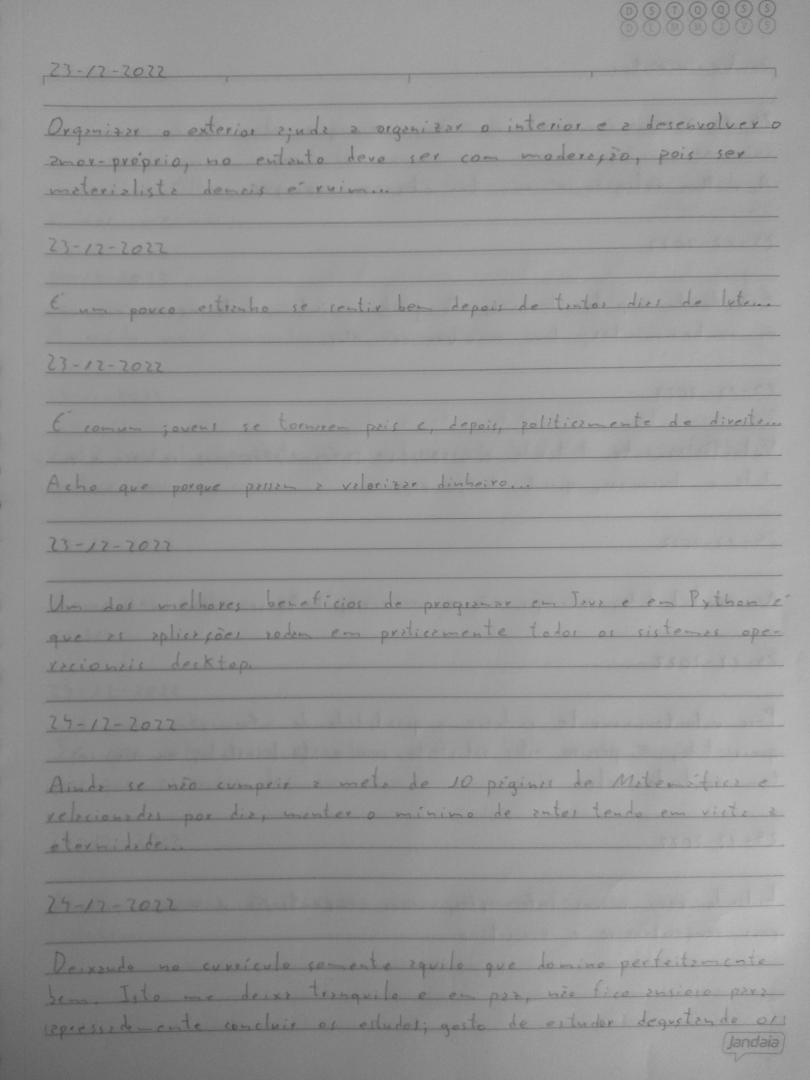 D S T Q Q S S
D L M M J V S
23-12-2022
Organizar o exterior ajuda a organizar o interior e a desenvolver o
amor-próprio, no entanto deve ser com moderação, pois ser
materialista demais é ruim...
23-12-2022
É um pouco estranho se sentir bem depois de tantos dias de luta...
23-12-2022
É comum jovens se tornarem pais e, depois, politicamente de direita...
Acho que porque passam a valorizar dinheiro...
23-12-2022
Um dos melhores benefícios de programar em Java e em Python é
que as aplicações rodam em praticamente todos os sistemas ope-
racionais desktop.
24-12-2022
Ainda se não cumprir a meta de 10 páginas de Matemática e
relacionadas por dia, manter o mínimo de antes tendo em vista a
eternidade...
24-12-2022
Deixando no currículo somente aquilo que domino perfeitamente
bem. Isto me deixa tranquilo e em paz, não fico ansioso para
apressadamente concluir os estudos; gosto de estudar degustando os
Jandaia